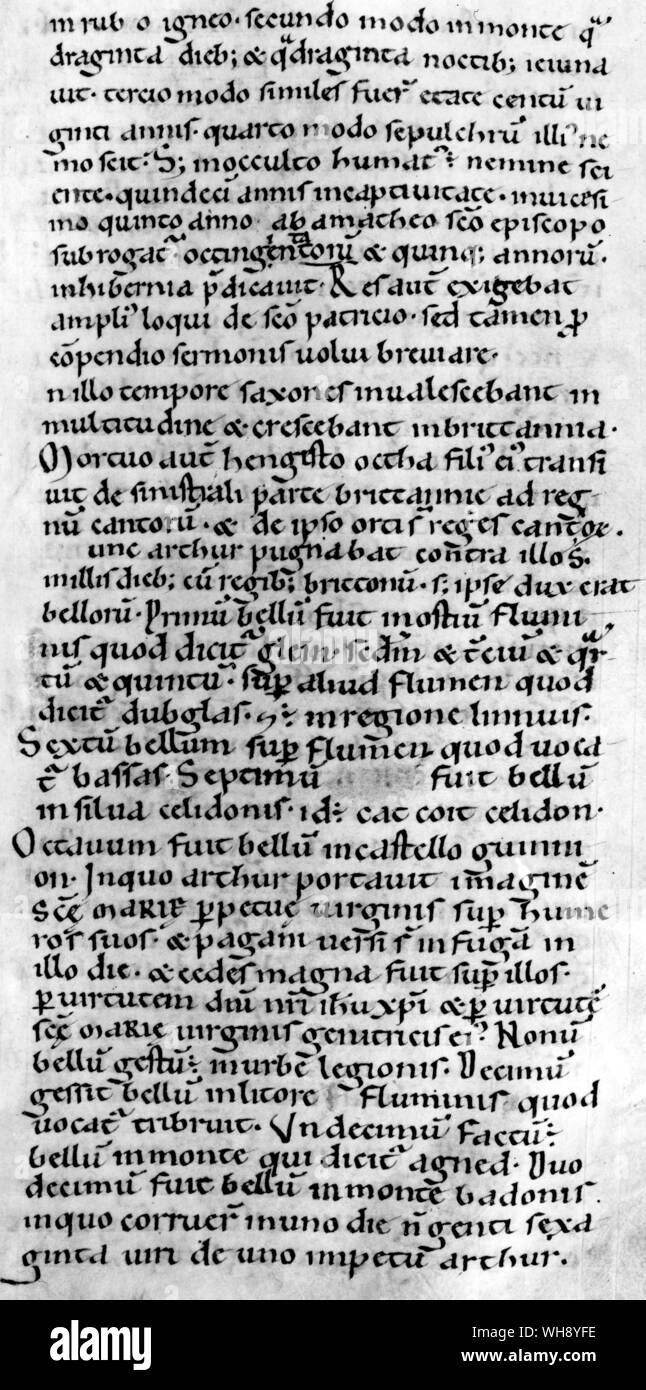 in rub o igneo. secundo modo in monte q̄
draginta dieb; & q̄draginta noctib; ieiuna
uit. tercio modo similes fuer̄ etate centū ui
ginti annis. quarto modo sepulchrū illi' ne
mo scit: S; inocculto humat' : nemine sci
ente. quindecī annis incaptiuitate. inuicesi
mo quinto anno ab amatheo scō episcopo
subrogat' octingentorū & quinq; annorū.
inhibernia p̄dicauit. Res aut̄ exigebat
ampli' loqui de scō patricio. sed tam̄en p̄
cōpendio sermonis uolui breuiare.
n illo tempore saxones inualescebant in
multitudine & crescebant inbrittannia.
Mortuo aut̄ hengisto octha fili' ei' transi
uit de sinistrali parte brittannie ad reg
nū cantorū. & de ipso orti s̄ reges cantoꝝ.
unc arthur pugnabat contra illos.
inillis dieb; cū regib; brittonū. s; ipse dux erat
bellorū. Primū bellū fuit inostiū flumi
nis quod dicit' glein. sedm̄ & t̄ciū & q̄r
tū & quintū. sup̄ aliud flumen quod
dicit' dubglas. & : inregione linnuis.
Sextū bellum sup̄ flumen quod uoca
t' bassas. Septimū fuit bellū
insilua celidonis. id: cat coit celidon.
Octauum fuit bellū incastello guinni
on. Inquo arthur portauit imaginē
scę MARIĘ p̄petuę uirginis sup̄ hume
ros suos. & pagani uersi s̄ in fugā in
illo die. & cedes magna fuit sup̄ illos.
p̄ uirtutem dn̄i nr̄i ihu xp̄i & p̄ uirtutē
scę MARIĘ uirginis genitricis ei'. Nonū
bellū gestū: inurbe legionis. Decimū
gessit bellū inlitore fluminis quod
uocat' tribruit. Undecimū factū:
bellū inmonte qui dicit' agned. Duo
decimū fuit bellū inmonte badonis.
inquo corruer̄ inuno die n̄genti sexa
ginta uiri de uno impetū arthur.
alamy
Image ID: WH8YFE
www.alamy.com